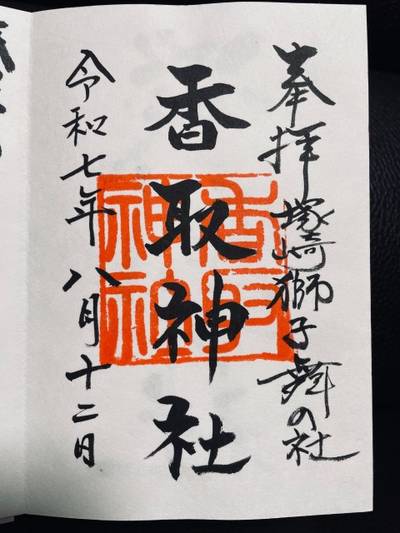 奉拝 塚崎獅子舞の社
香取神社
香取神社
令和七年 八月十二日